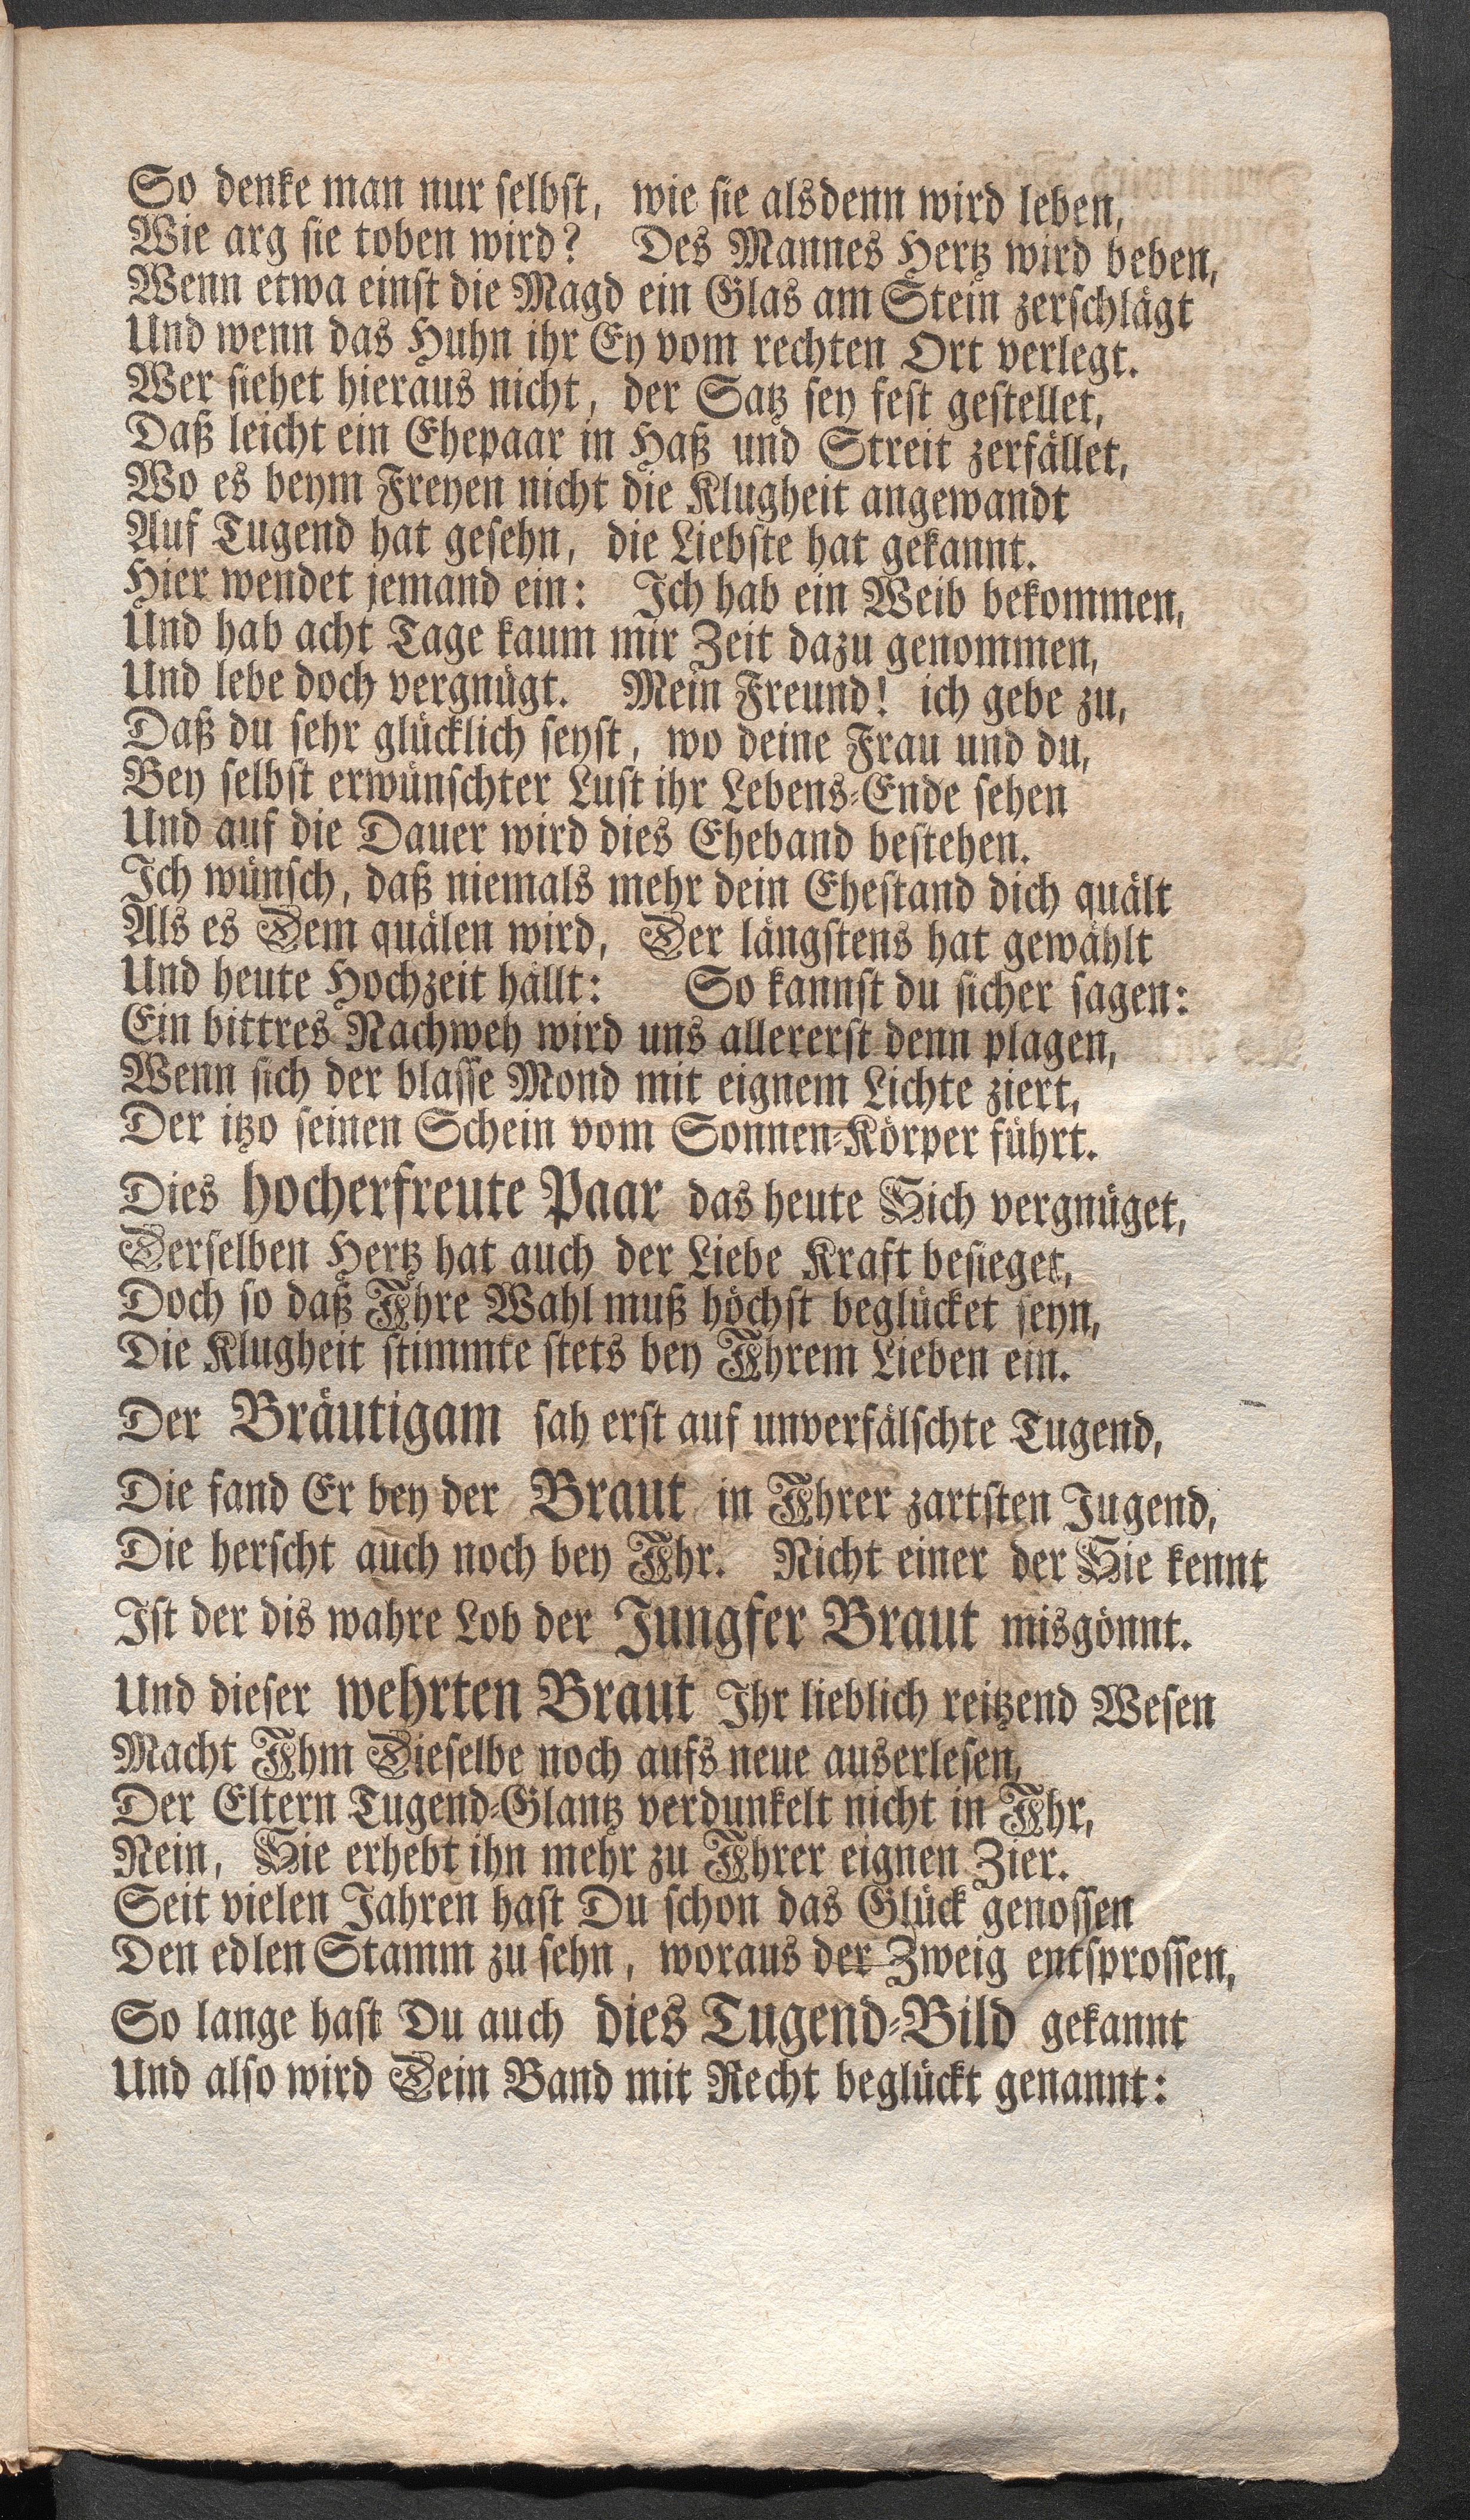 So denke man nur selbst, wie sie alsdenn wird leben,
Wie arg sie toben wird? Des Mannes Hertz wird beben,
Wenn etwa einst die Magd ein Glas am Stein zerschlägt
Und wenn das Huhn ihr Ey vom rechten Ort verlegt.
Wer siehet hieraus nicht, der Satz sey fest gestellet,
Daß leicht ein Ehepaar in Haß und Streit zerfället,
Wo es beym Freyen nicht die Klugheit angewandt
Auf Tugend hat gesehn, die Liebste hat gekannt.
Hier wendet jemand ein: Ich hab ein Weib bekommen,
Und hab acht Tage kaum mir Zeit dazu genommen,
Und lebe doch vergnügt. Mein Freund! ich gebe zu,
Daß du sehr glücklich seyst, wo deine Frau und du,
Bey selbst erwünschter Lust ihr Lebens-Ende sehen
Und auf die Dauer wird dies Eheband bestehen.
Ich wünsch, daß niemals mehr dein Ehestand dich quält
Als es Dem quälen wird, Der längstens hat gewählt
Und heute Hochzeit hällt: So kannst du sicher sagen:
Ein bittres Nachweh wird uns allererst denn plagen,
Wenn sich der blasse Mond mit eignem Lichte ziert,
Der itzo seinen Schein vom Sonnen-Körper führt.
Dies hocherfreute Paar das heute Sich vergnüget,
Derselben Hertz hat auch der Liebe Kraft besieget,
Doch so daß Ihre Wahl muß höchst beglücket seyn,
Die Klugheit stimmte stets bey Ihrem Lieben ein.
Der Bräutigam sah erst auf unverfälschte Tugend,
Die fand Er bey der Braut in Ihrer zartsten Jugend,
Die herscht auch noch bey Ihr. Nicht einer der Sie kennt
Ist der dis wahre Lob der Jungfer Braut misgönnt.
Und dieser wehrten Braut Ihr lieblich reitzend Wesen
Macht Ihm Dieselbe noch aufs neue auserlesen,
Der Eltern Tugend-Glantz verdunkelt nicht in Ihr,
Nein, Sie erhebt ihn mehr zu Ihrer eignen Zier.
Seit vielen Jahren hast Du schon das Glück genossen
Den edlen Stamm zu sehn, woraus der Zweig entsprossen,
So lange hast Du auch dies Tugend-Bild gekannt
Und also wird Dein Band mit Recht beglückt genannt: